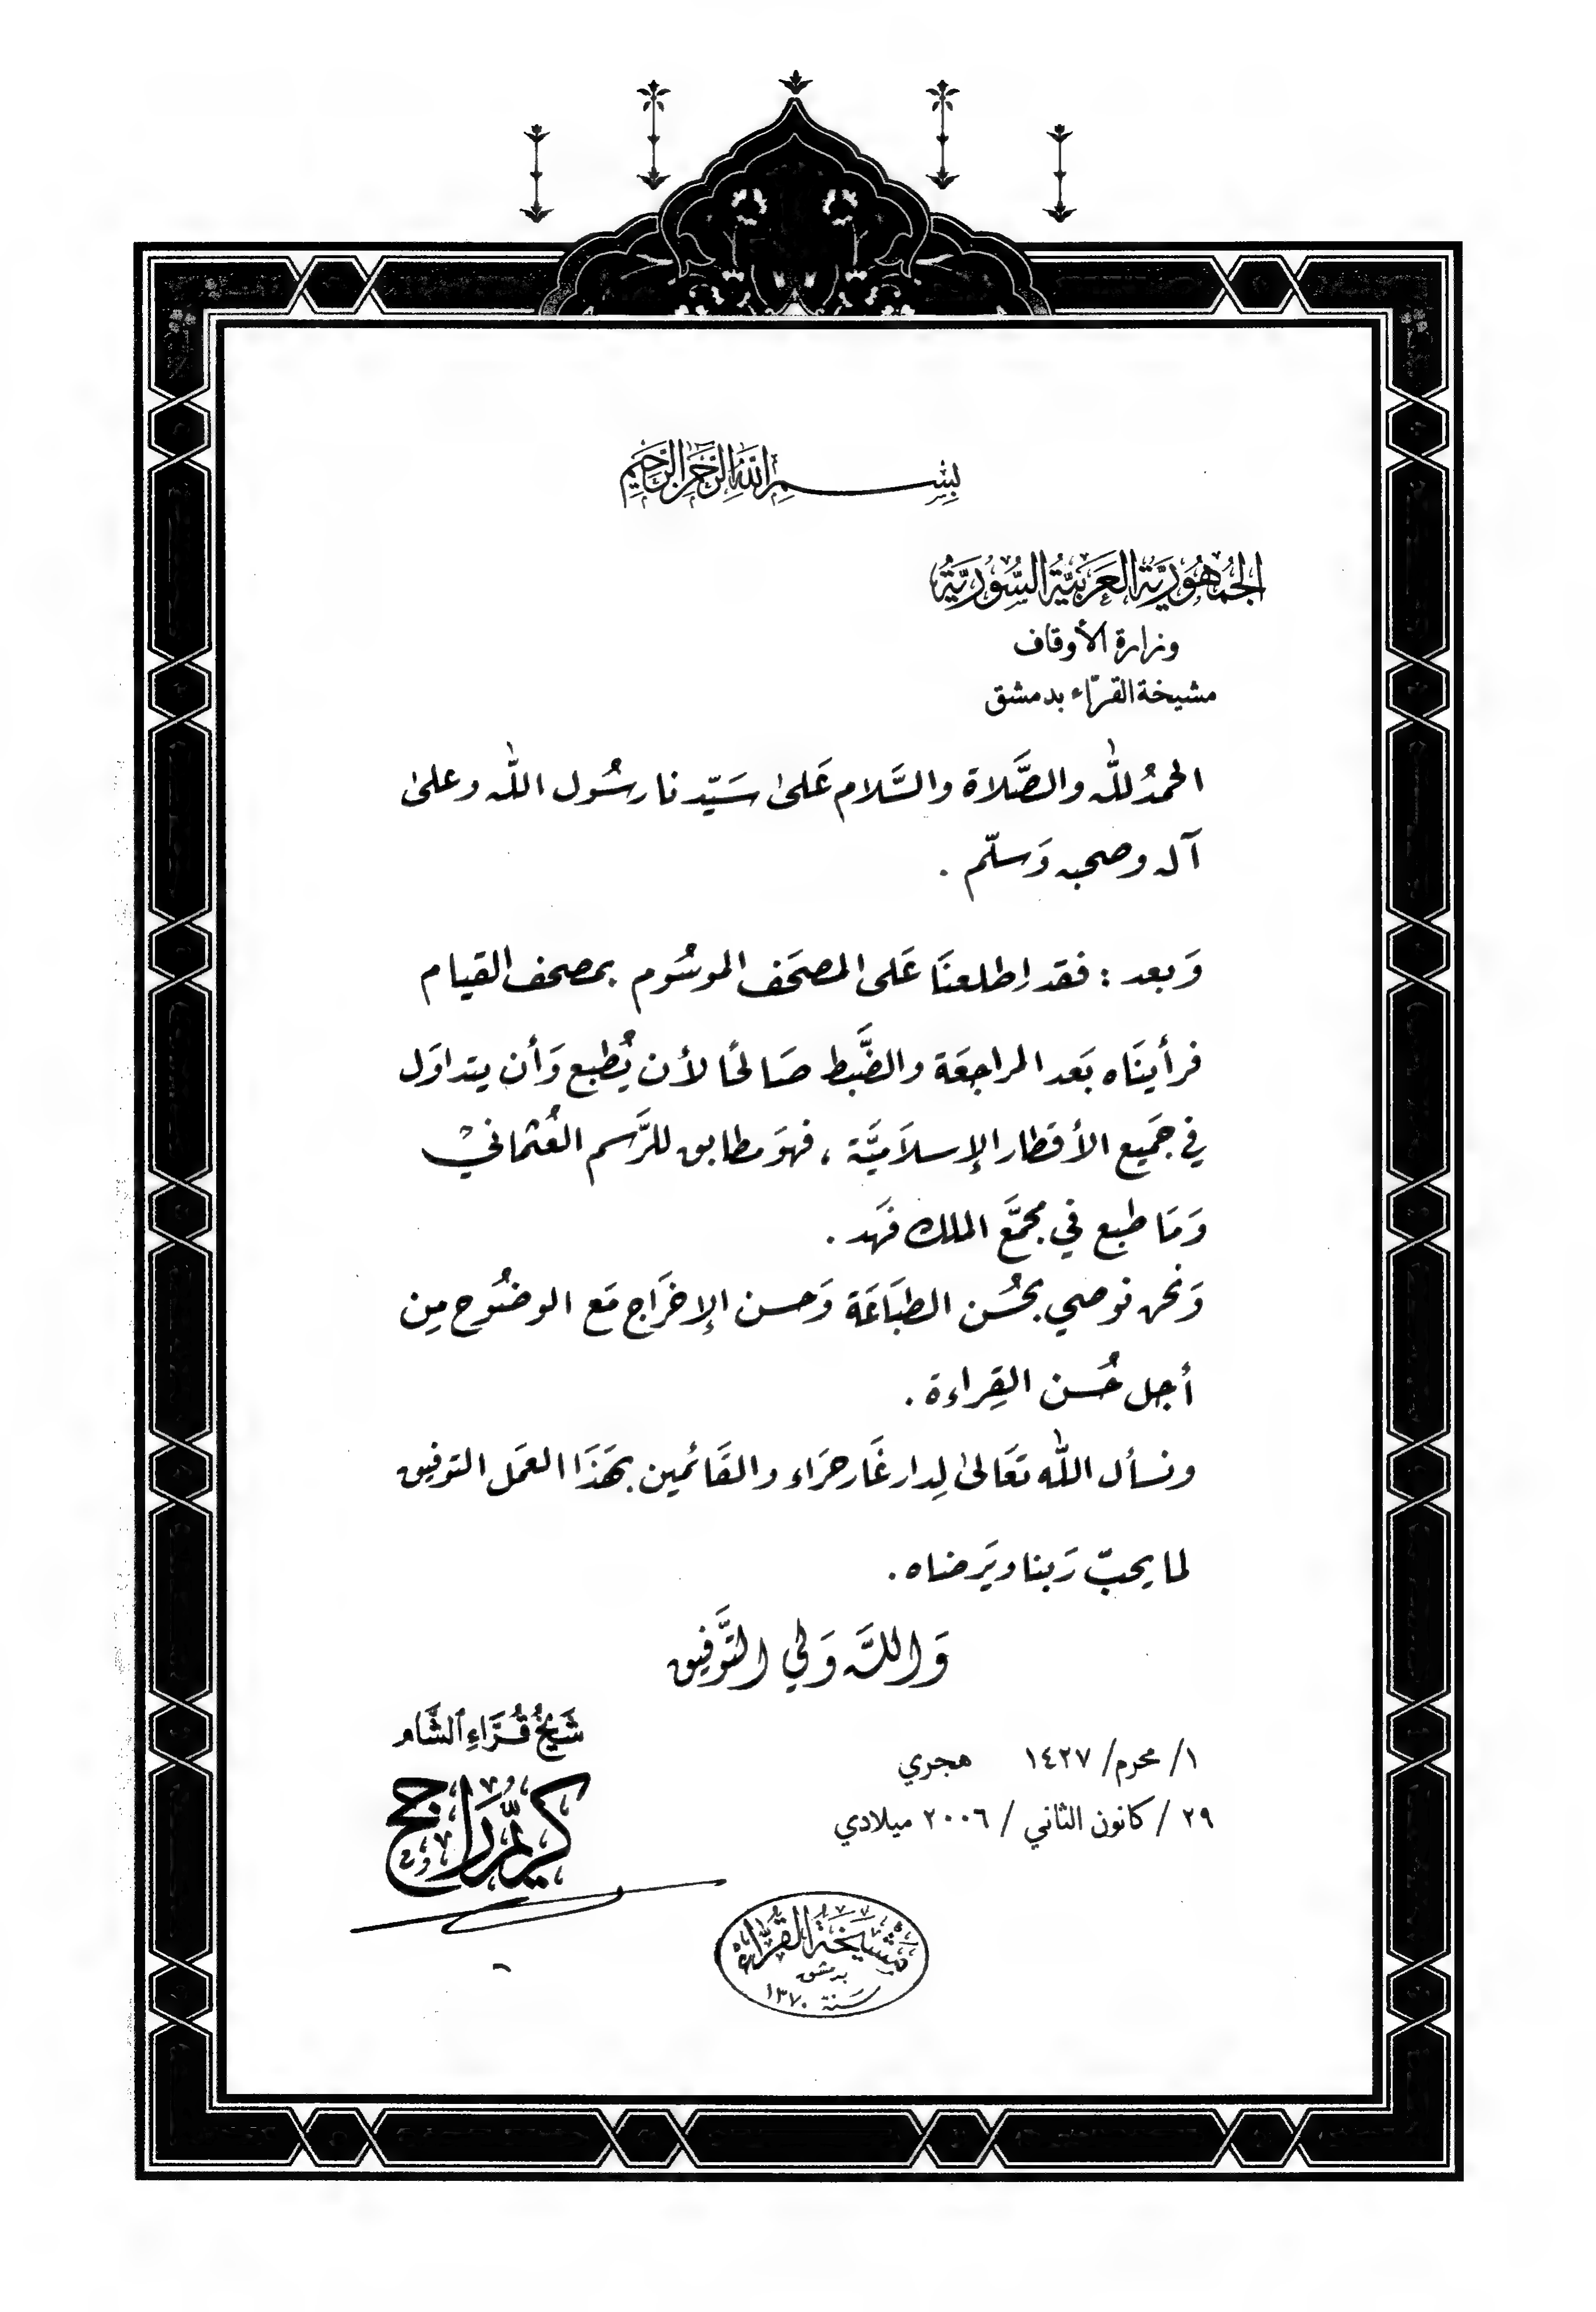 بِسْمِ اللهِ الرَّحْمٰنِ الرَّحِيمِ
الجُمْهُورِيَّةُ العَرَبِيَّةُ السُّورِيَّةُ
وزارة الأوقاف
مشيخة القرّاء بدمشق
الحمدُ للّٰه والصَّلاة والسَّلام عَلىٰ سَيّدنا رسُول اللّٰه وعلىٰ
آله وصحبه وَسلّم .
وَبعد : فقد اِطلعنَا عَلى المصحَف الموسُوم بمصحف القيام
فرأينَاه بَعد المراجعَة والضَّبط صَالحًا لأن يُطبع وَأن يتداوَل
في جمَيع الأقطار الإسلاَميَّة ، فهوَ مطابق للرَّسم العُثمانيْ
وَمَا طبع في مجمَّع الملك فَهَد .
وَنحن نوصي بحُسن الطبَاعَة وَحسن الإخرَاج مَع الوضُوح مِن
أجل حُسن القِراءة .
ونسأل اللّٰه تعَالىٰ لِدار غَار حرَاء والقَائمين بهَذَا العمَل التوفيق
لما يحبّ رَبنا ويَرضاه .
وَاللَّه وَلي التَّوَفِيق
شَيْخُ قُرَّاءِ الشَّام
كريّم رَاجح
١/ محرم/ ١٤٢٧ هجري
٢٩ / كانون الثاني / ٢٠٠٦ ميلادي
مَشْيَخَةُ القُرَّاء
بدمشق
سَنة ١٣٧٠